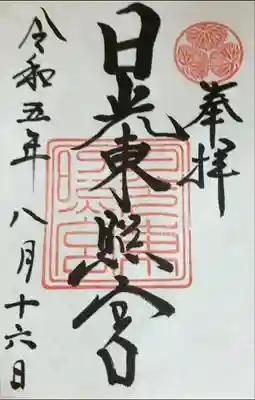 奉拝
日光東照宮
令和五年八月十六日